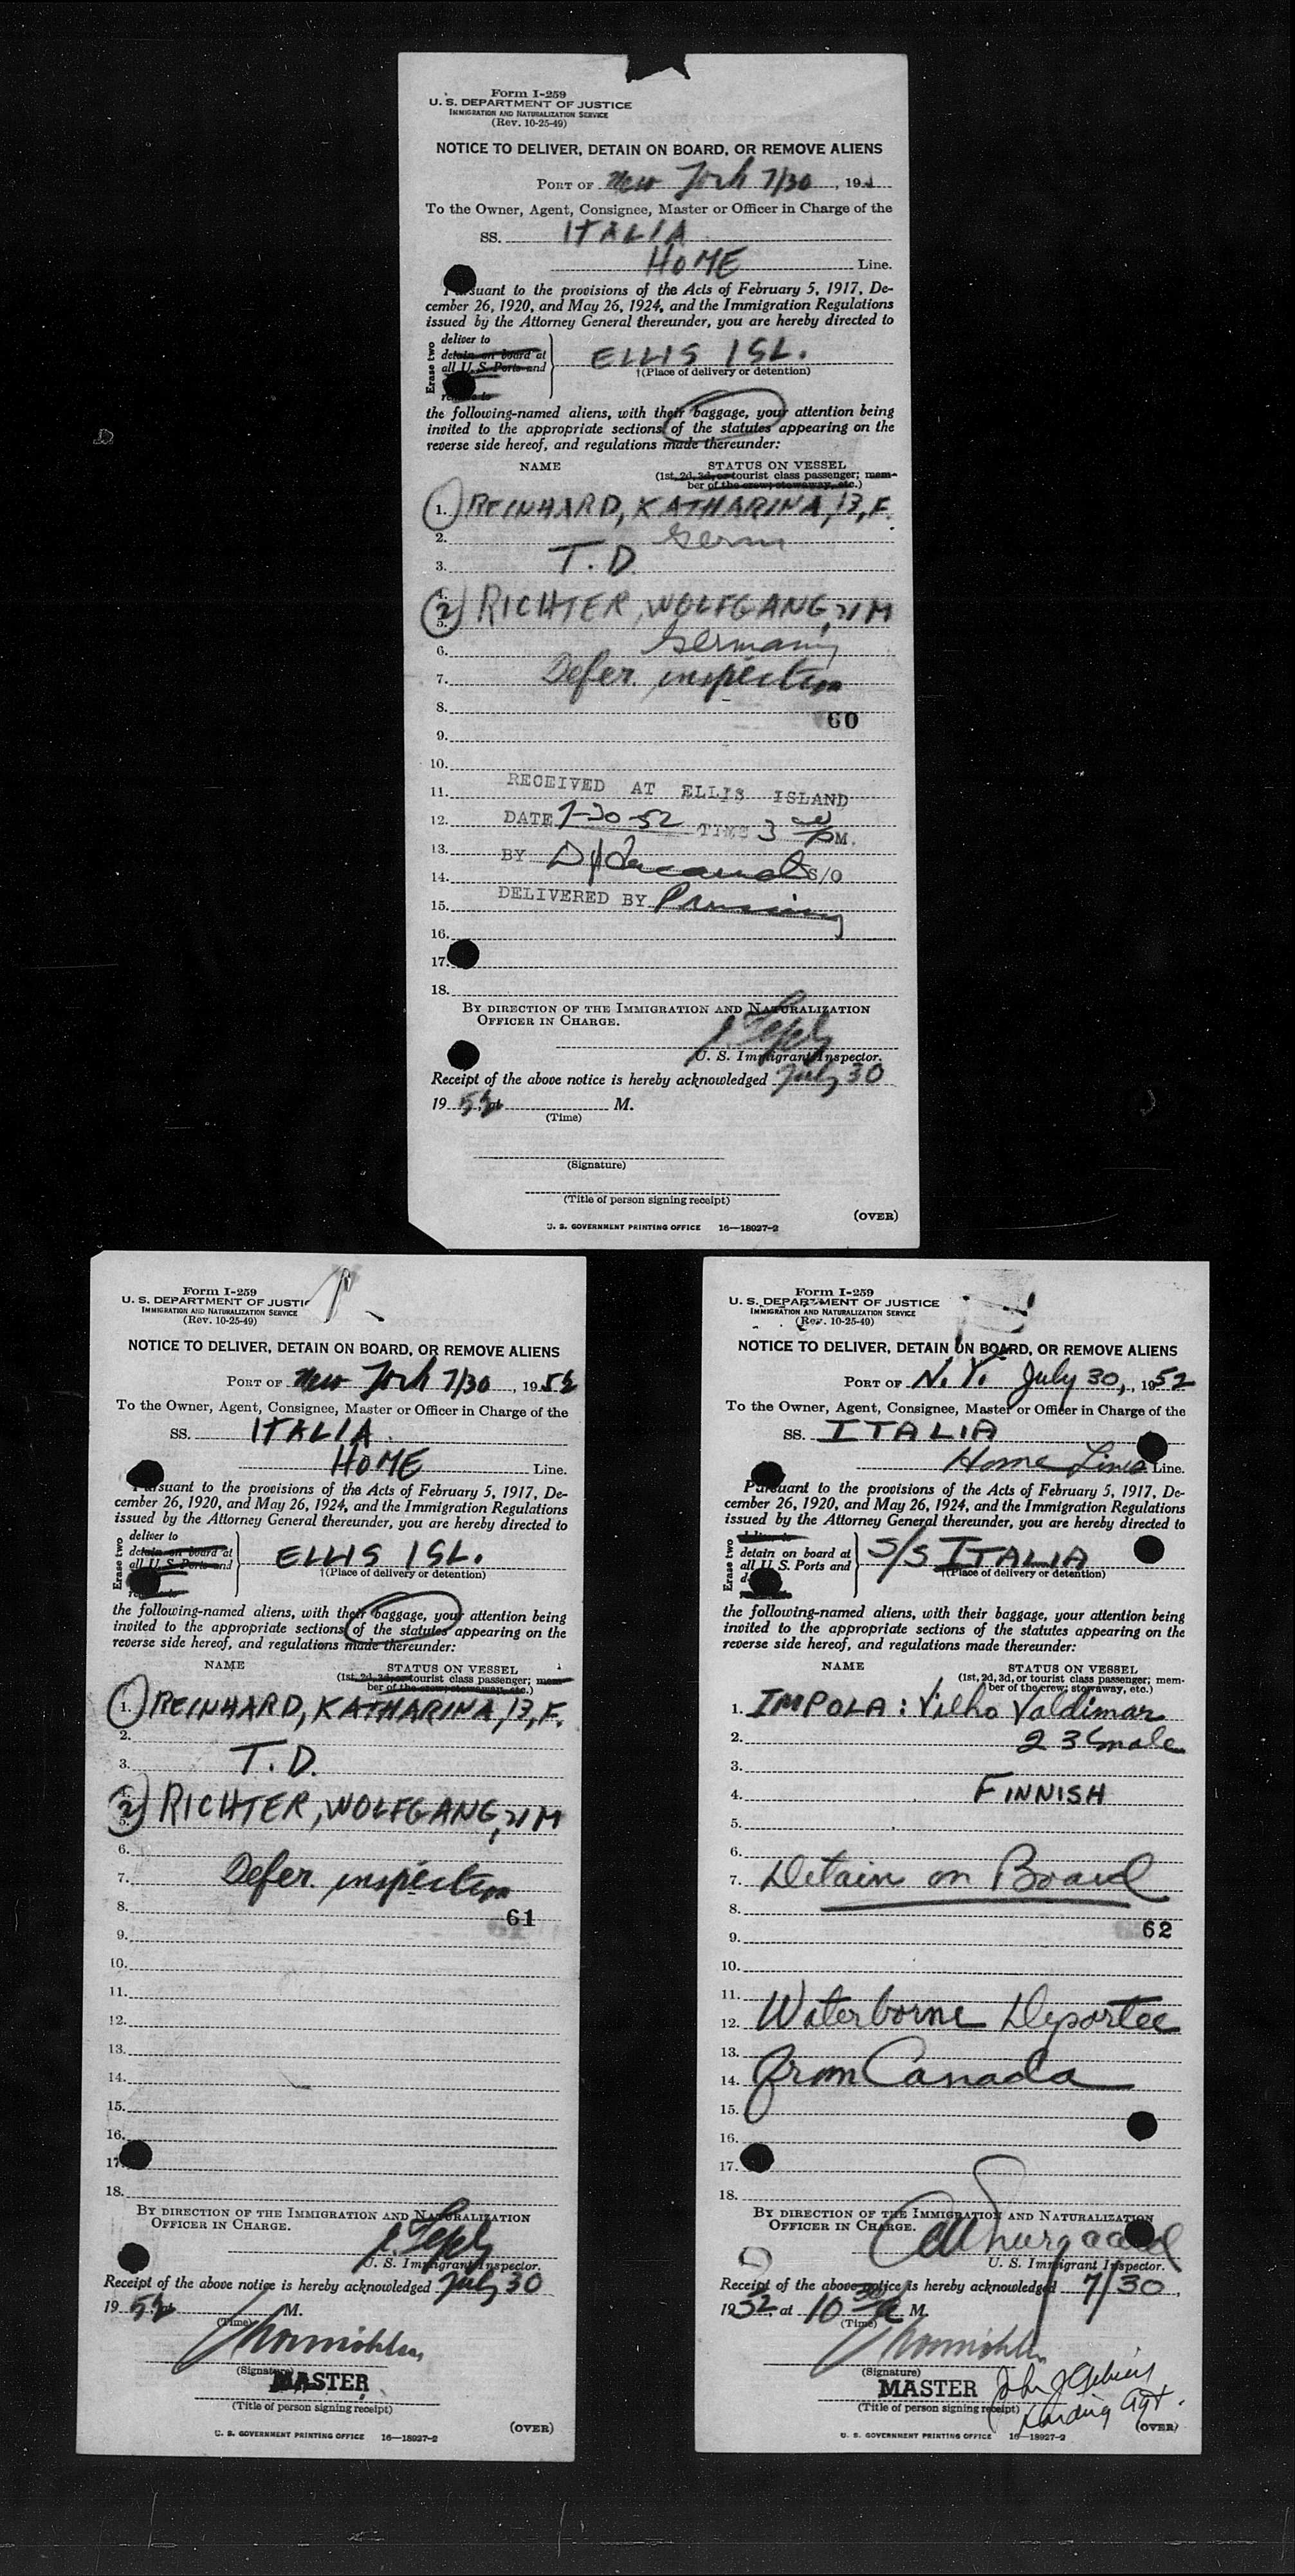 Form I-259
U. S. DEPARTMENT OF JUSTICE
IMMIGRATION AND NATURALIZATION SERVICE
(Rev. 10-25-49)
NOTICE TO DELIVER, DETAIN ON BOARD, OR REMOVE ALIENS
PORT OF New York 7/30, 19
To the Owner, Agent, Consignee, Master or Officer in Charge of the
SS. ITALIA
HOME Line.
suant to the provisions of the Acts of February 5, 1917, De-
cember 26, 1920, and May 26, 1924, and the Immigration Regulations
issued by the Attorney General thereunder, you are hereby directed to
Erase two
deliver to
detain on board at
all U. S. Ports and
ELLIS ISL.
†(Place of delivery or detention)
the following-named aliens, with their baggage, your attention being
invited to the appropriate sections of the statutes appearing on the
reverse side hereof, and regulations made thereunder:
NAME STATUS ON VESSEL
(1st, 2d, 3d, or tourist class passenger; mem-
ber of the crew; stowaway, etc.)
1. REINHARD, KATHARINA, 13, F.
2. Germ
3. T. D.
4.
(2) RICHTER, WOLFGANG, 21 M
5.
6. Germany
7. Defer. inspection
8.
60
9.
10.
11. RECEIVED AT ELLIS ISLAND
12. DATE 7-30-52 TIME 3 PM.
13. BY S/O
14.
15. DELIVERED BY
16.
17.
18.
BY DIRECTION OF THE IMMIGRATION AND NATURALIZATION
OFFICER IN CHARGE.
U. S. Immigrant Inspector.
Receipt of the above notice is hereby acknowledged July 30
19 52 at M.
(Time)
(Signature)
(Title of person signing receipt)
(OVER)
U. S. GOVERNMENT PRINTING OFFICE 16—18927-2
Form I-259
U. S. DEPARTMENT OF JUSTIC
IMMIGRATION AND NATURALIZATION SERVICE
(Rev. 10-25-49)
NOTICE TO DELIVER, DETAIN ON BOARD, OR REMOVE ALIENS
PORT OF New York 7/30, 1952
To the Owner, Agent, Consignee, Master or Officer in Charge of the
SS. ITALIA
HOME Line.
rsuant to the provisions of the Acts of February 5, 1917, De-
cember 26, 1920, and May 26, 1924, and the Immigration Regulations
issued by the Attorney General thereunder, you are hereby directed to
Erase two
deliver to
detain on board at
all U. S. Ports and
ELLIS ISL.
†(Place of delivery or detention)
the following-named aliens, with their baggage, your attention being
invited to the appropriate sections of the statutes appearing on the
reverse side hereof, and regulations made thereunder:
NAME STATUS ON VESSEL
(1st, 2d, 3d, or tourist class passenger; mem-
ber of the crew; stowaway, etc.)
1. REINHARD, KATHARINA, 13, F.
2.
3. T. D.
(2) RICHTER, WOLFGANG, 21 M
5.
6.
7. Defer. inspection
8.
61
9.
10.
11.
12.
13.
14.
15.
16.
17.
18.
BY DIRECTION OF THE IMMIGRATION AND NATURALIZATION
OFFICER IN CHARGE.
U. S. Immigrant Inspector.
Receipt of the above notice is hereby acknowledged July 30
19 52 at M.
(Time)
(Signature)
MASTER
(Title of person signing receipt)
(OVER)
U. S. GOVERNMENT PRINTING OFFICE 16—18927-2
Form I-259
U. S. DEPARTMENT OF JUSTICE
IMMIGRATION AND NATURALIZATION SERVICE
(Rev. 10-25-49)
NOTICE TO DELIVER, DETAIN ON BOARD, OR REMOVE ALIENS
PORT OF N. Y. July 30, 1952
To the Owner, Agent, Consignee, Master or Officer in Charge of the
SS. ITALIA
Home Lines Line.
Pursuant to the provisions of the Acts of February 5, 1917, De-
cember 26, 1920, and May 26, 1924, and the Immigration Regulations
issued by the Attorney General thereunder, you are hereby directed to
Erase two
detain on board at
all U. S. Ports and
S/S ITALIA
†(Place of delivery or detention)
the following-named aliens, with their baggage, your attention being
invited to the appropriate sections of the statutes appearing on the
reverse side hereof, and regulations made thereunder:
NAME STATUS ON VESSEL
(1st, 2d, 3d, or tourist class passenger; mem-
ber of the crew; stowaway, etc.)
1. IMPOLA: Vilho Valdimar
2. 23 male
3.
4. FINNISH
5.
6.
7. Detain on Board
8.
62
9.
10.
11.
12. Waterborne Deportee
13.
14. from Canada
15.
16.
17.
18.
BY DIRECTION OF THE IMMIGRATION AND NATURALIZATION
OFFICER IN CHARGE.
U. S. Immigrant Inspector.
Receipt of the above notice is hereby acknowledged 7/30,
1952 at 10 30 A M.
(Time)
(Signature)
MASTER
(Title of person signing receipt)
Landing Agt.
(OVER)
U. S. GOVERNMENT PRINTING OFFICE 16—18927-2